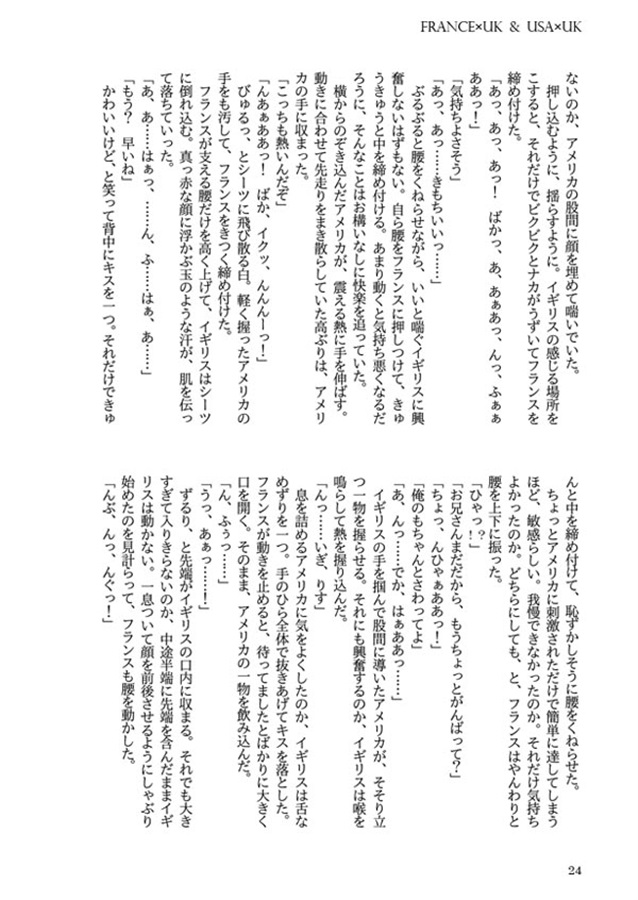 FRANCE×UK & USA×UK
ないのか、アメリカの股間に顔を埋めて喘いでいた。
押し込むように、揺らすように。イギリスの感じる場所を
こすると、それだけでビクビクとナカがうずいてフランスを
締め付けた。
「あっ、あっ、あっ！　ばかっ、あ、あぁあっ、んっ、ふぁぁ
ああっ！」
「気持ちよさそう」
「あっ、あっ……きもちいいっ……」
ぶるぶると腰をくねらせながら、いいと喘ぐイギリスに興
奮しないはずもない。自ら腰をフランスに押しつけて、きゅ
うきゅうと中を締め付ける。あまり動くと気持ち悪くなるだ
ろうに、そんなことはお構いなしに快楽を追っていた。
横からのぞき込んだアメリカが、震える熱に手を伸ばす。
動きに合わせて先走りをまき散らしていた高ぶりは、アメリ
カの手に収まった。
「こっちも熱いんだぞ」
「んあぁああっ！　ばか、イクッ、んんんーっ！」
びゅるっ、とシーツに飛び散る白。軽く握ったアメリカの
手をも汚して、フランスをきつく締め付けた。
フランスが支える腰だけを高く上げて、イギリスはシーツ
に倒れ込む。真っ赤な顔に浮かぶ玉のような汗が、肌を伝っ
て落ちていった。
「あ、あ……はぁっ、……ん、ふ……はぁ、あ……」
「もう？　早いね」
かわいいけど、と笑って背中にキスを一つ。それだけできゅ
んと中を締め付けて、恥ずかしそうに腰をくねらせた。
ちょっとアメリカに刺激されただけで簡単に達してしまう
ほど、敏感らしい。我慢できなかったのか。それだけ気持ち
よかったのか。どちらにしても、と、フランスはやんわりと
腰を上下に振った。
「ひゃっ？！」
「お兄さんまだだから、もうちょっとがんばって？」
「ちょっ、んひゃぁああっ！」
「俺のもちゃんとさわってよ」
「あ、んっ……でか、はぁああっ……」
イギリスの手を掴んで股間に導いたアメリカが、そそり立
つ一物を握らせる。それにも興奮するのか、イギリスは喉を
鳴らして熱を握り込んだ。
「んっ……いぎ、りす」
息を詰めるアメリカに気をよくしたのか、イギリスは舌な
めずりを一つ。手のひら全体で抜きあげてキスを落とした。
フランスが動きを止めると、待ってましたとばかりに大きく
口を開く。そのまま、アメリカの一物を飲み込んだ。
「ん、ふぅっ……」
「うっ、あぁっ……！」
ずるり、と先端がイギリスの口内に収まる。それでも大き
すぎて入りきらないのか、中途半端に先端を含んだままイギ
リスは動かない。一息ついて顔を前後させるようにしゃぶり
始めたのを見計らって、フランスも腰を動かした。
「んぶ、んっ、んぐっ！」
24